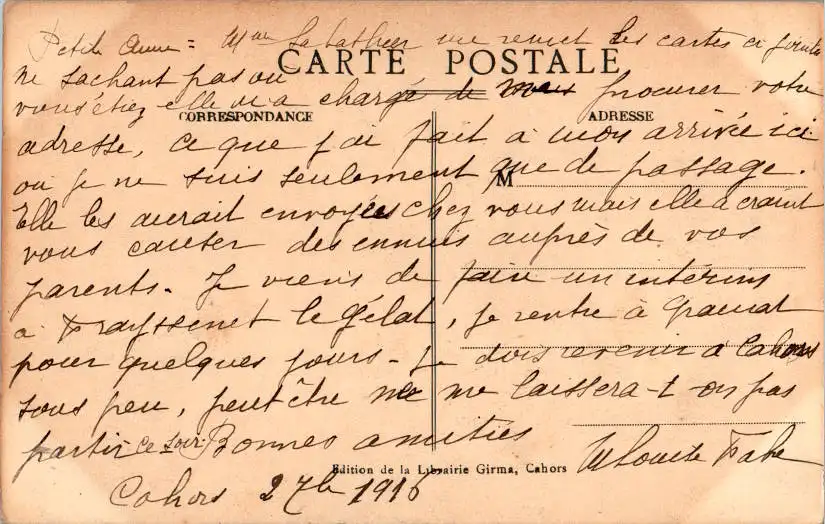 Petite Amie = Mme Labathier me remet les cartes ci jointes
CARTE POSTALE
ne sachant pas où
vous étiez elle m'a chargé de procurer votre
CORRESPONDANCE
ADRESSE
adresse, ce que j'ai fait à mon arrivée ici
où je ne suis seulement que de passage.
M
Elle les aurait envoyées chez vous mais elle a craint
vous causer des ennuis auprès de vos
parents. Je viens de faire un intérim
à Frayssenet le Gélat, je rentre à Gramat
pour quelques jours - Je dois revenir à Cahors
sous peu, peut être ne me laissera-t-on pas
partir ce soir. Bonnes amitiés
Fabre
Edition de la Librairie Girma, Cahors
Cahors 2 7bre 1916